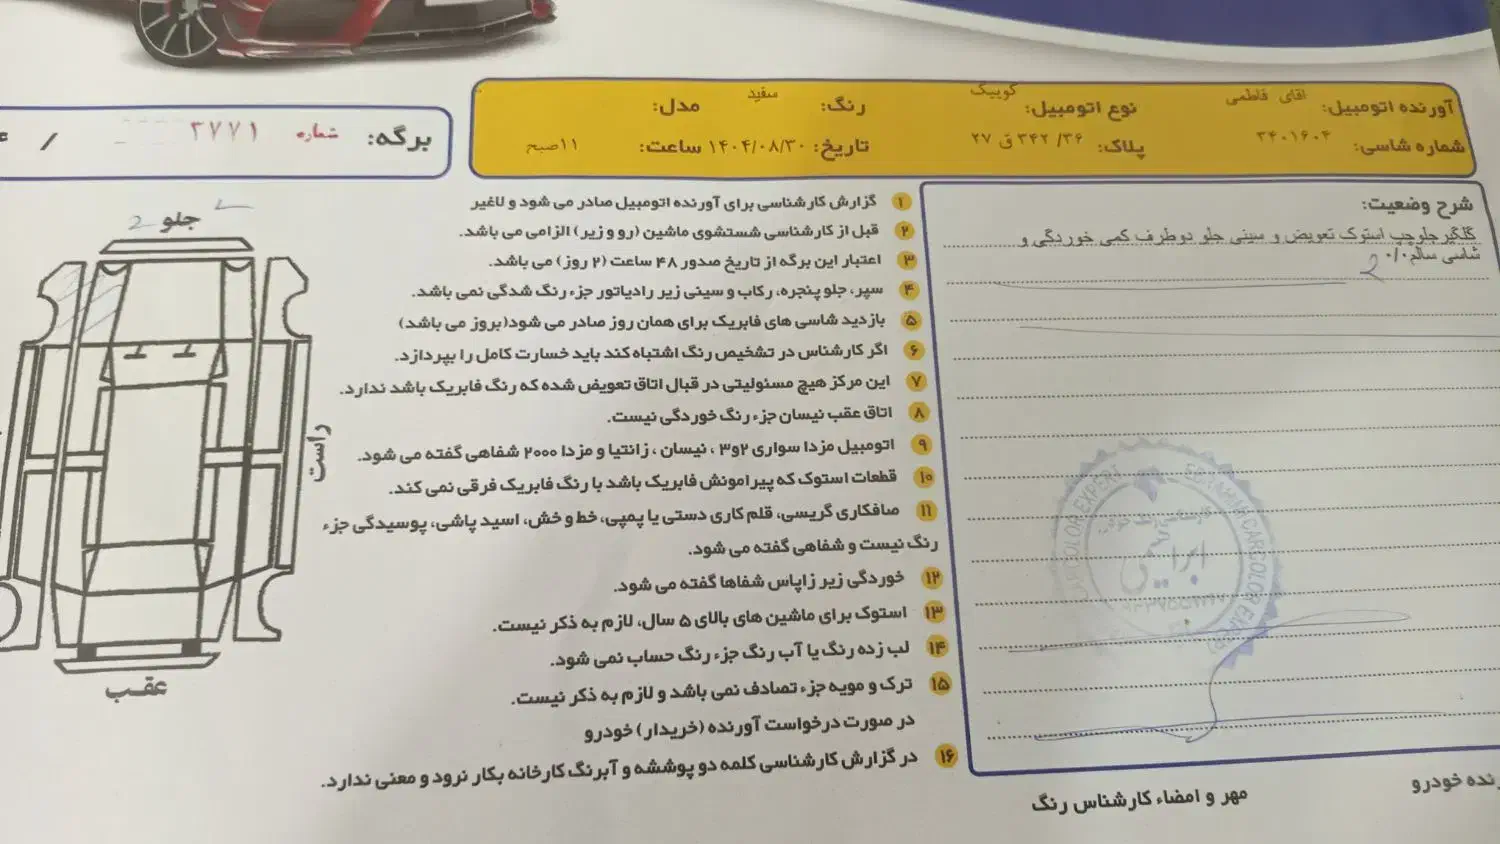 آورنده اتومبیل: اقای فاطمی نوع اتومبیل: کوییک رنگ: سفید مدل:
شماره شاسی: ۳۴۰۱۶۰۴ پلاک: ۳۶/ ۳۴۲ ق ۲۷ تاریخ: ۱۴۰۴/۰۸/۳۰ ساعت: ۱۱صبح
برگه: شماره ۳۷۷۱ /
شرح وضعیت:
گلگیر جلوچپ استوک تعویض و سینی جلو دوطرف کمی خوردگی و
شاسی سالم۰/۰
۱ گزارش کارشناسی برای آورنده اتومبیل صادر می شود و لاغیر
۲ قبل از کارشناسی شستشوی ماشین (رو و زیر) الزامی می باشد.
۳ اعتبار این برگه از تاریخ صدور ۴۸ ساعت (۲ روز) می باشد.
۴ سپر، جلو پنجره، رکاب و سینی زیر رادیاتور جزء رنگ شدگی نمی باشد.
۵ بازدید شاسی های فابریک برای همان روز صادر می شود(بروز می باشد)
۶ اگر کارشناس در تشخیص رنگ اشتباه کند باید خسارت کامل را بپردازد.
۷ این مرکز هیچ مسئولیتی در قبال اتاق تعویض شده که رنگ فابریک باشد ندارد.
۸ اتاق عقب نیسان جزء رنگ خوردگی نیست.
۹ اتومبیل مزدا سواری ۲و۳ ، نیسان ، زانتیا و مزدا ۲۰۰۰ شفاهی گفته می شود.
۱۰ قطعات استوک که پیرامونش فابریک باشد با رنگ فابریک فرقی نمی کند.
۱۱ صافکاری گریسی، قلم کاری دستی یا پمپی، خط و خش، اسید پاشی، پوسیدگی جزء
رنگ نیست و شفاهی گفته می شود.
۱۲ خوردگی زیر زاپاس شفاها گفته می شود.
۱۳ استوک برای ماشین های بالای ۵ سال، لازم به ذکر نیست.
۱۴ لب زده رنگ یا آب رنگ جزء رنگ حساب نمی شود.
۱۵ ترک و مویه جزء تصادف نمی باشد و لازم به ذکر نیست.
در صورت درخواست آورنده (خریدار) خودرو
۱۶ در گزارش کارشناسی کلمه دو پوششه و آبرنگ کارخانه بکار نرود و معنی ندارد.
جلو
راست
عقب
کارشناسی رنگ
ابراهیمی
EBRAHIMI CARCOLOR EXPERT
مهر و امضاء کارشناس رنگ
خودرو